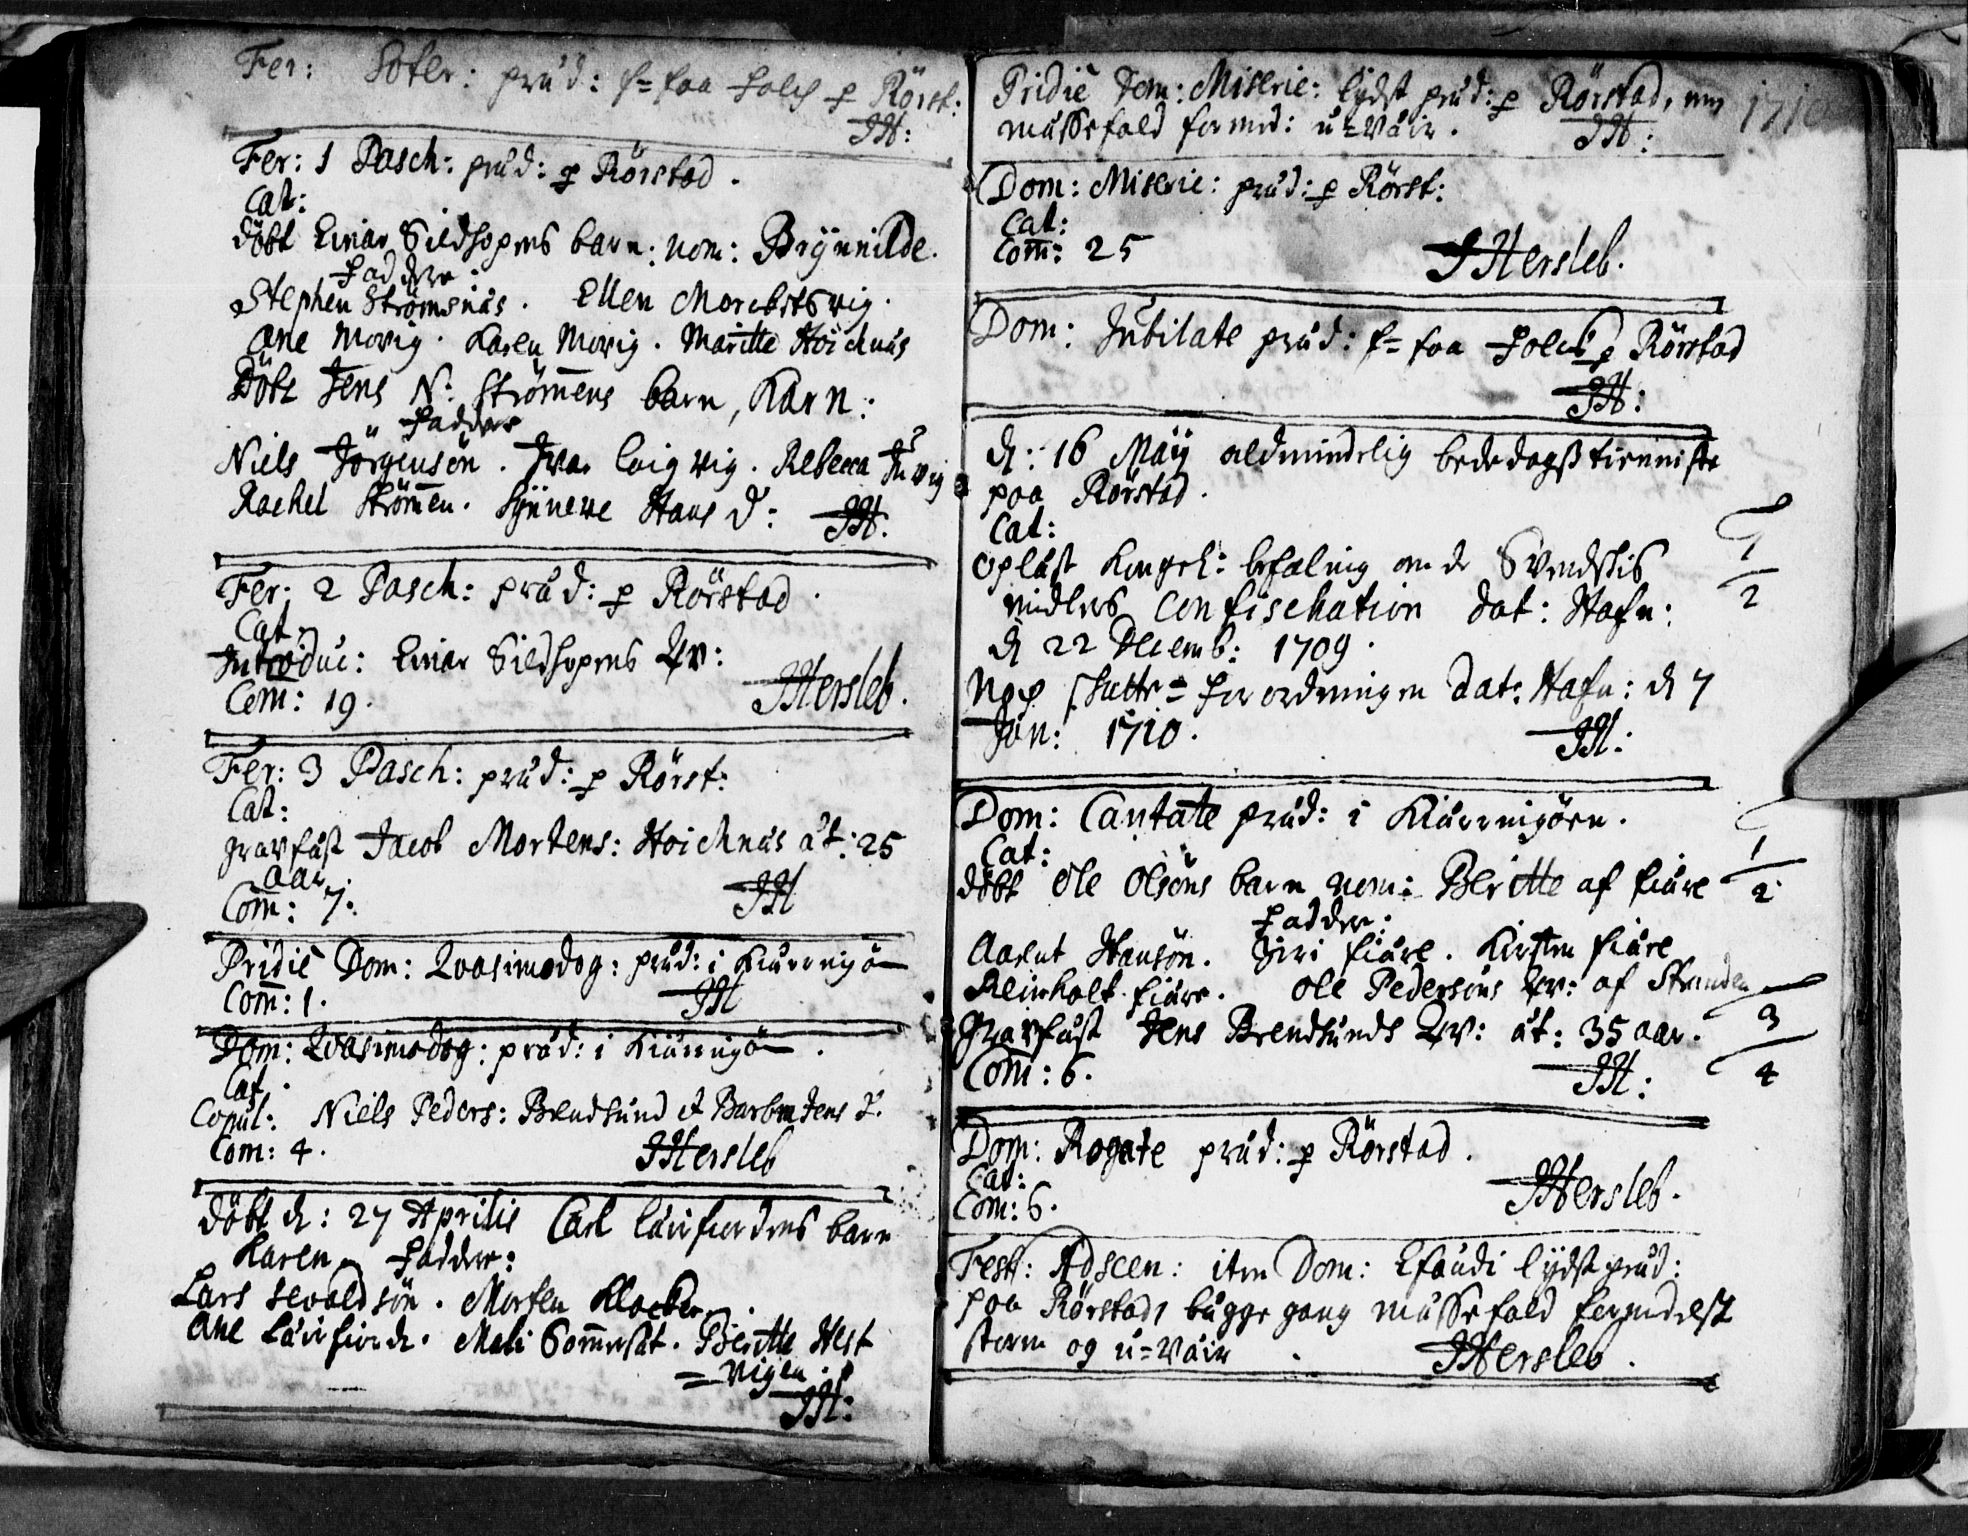 Fer: Soter: præd: f= faa Folch p Rörst:
JH:
Fer: 1 Pasch: præd: p Rörstad.
Cat:
döbt Einar Sildhopens barn: nom: Brynnilde.
Faddere:
Stephen Strömsnæs. Ellen Morckestsvig.
Ane Movig. Karen Movig. Maritte Höichnæs
Döbt Jens N: Strömens barn, Karn:
Faddere
Niels Jörgensön. Ivar Leigvig. Rebecca Juvig
Rachel Strömen. Synneve Hans D: JH.
Fer: 2 Pasch: præd: p Rörstad.
Cat:
Introduc: Einar Sildhopens Qv:
Com: 19. JHersleb.
Fer: 3 Pasch: præd: p Rörst:
Cat:
gravfæst Jacob Mortens: Hoichnæs æt: 25
aar.
Com: 7. JH
Pridie Dom: Qvasimodog: præd: i Kiærringö
Com: 1. JH
Dom: Qvasimodog: præd: i Kiærringö.
Cat.
Copul: Niels Peders: Brendsund et Barbra Jens D.
Com: 4. JHersleb
döbt d: 27 Aprilis Carl Læirfiordens barn
Karen. Faddere:
Lars Sevaldsön. Morten Klocker.
Ane Læirfiord. Mali Somerset. Beritte Hest
=vigen.
JH:
Pridie Dom: Miseric: lydst præd: p Rörstad, men 1710
messefald formed: u=væir. JH:
Dom: Miseric: præd: p Rörst:
Cat:
Com: 25 JHersleb.
Dom: Jubilate præd: f= faa Folch p Rörstad
JH:
d: 16 Maÿ aldmindelig bededagstienniste
paa Rörstad.
Cat:
oplæst Kongel: befaling om de Svendskis 1
midlers Confischation dat: Hafn: 2
d 22 Decemb: 1709.
Nog Skatte=forordningen dat: Hafn: d 7
Jan: 1710. JH:
Dom: Cantate præd: i Kiærringöen.
Cat: 1
döbt Ole Olsöns barn nom: Beritte af Fiære 2
Faddere:
Aarnt Hansön. Siri Fiære. Kirsten Fiære
Reinholt Fiære. Ole Pedersöns Qv: af Stranden
Gravfæst Jens Brendsunds Qv: æt: 35 aar. 3
Com: 6. JH: 4
Dom: Rogate præd: p Rörstad.
Cat:
Com: 6. JHersleb.
Fest: Adscen: item Dom: Exaudi lydst præd:
paa Rörstad, begge gang messefald formedelst
storm og u=væir. JHersleb.